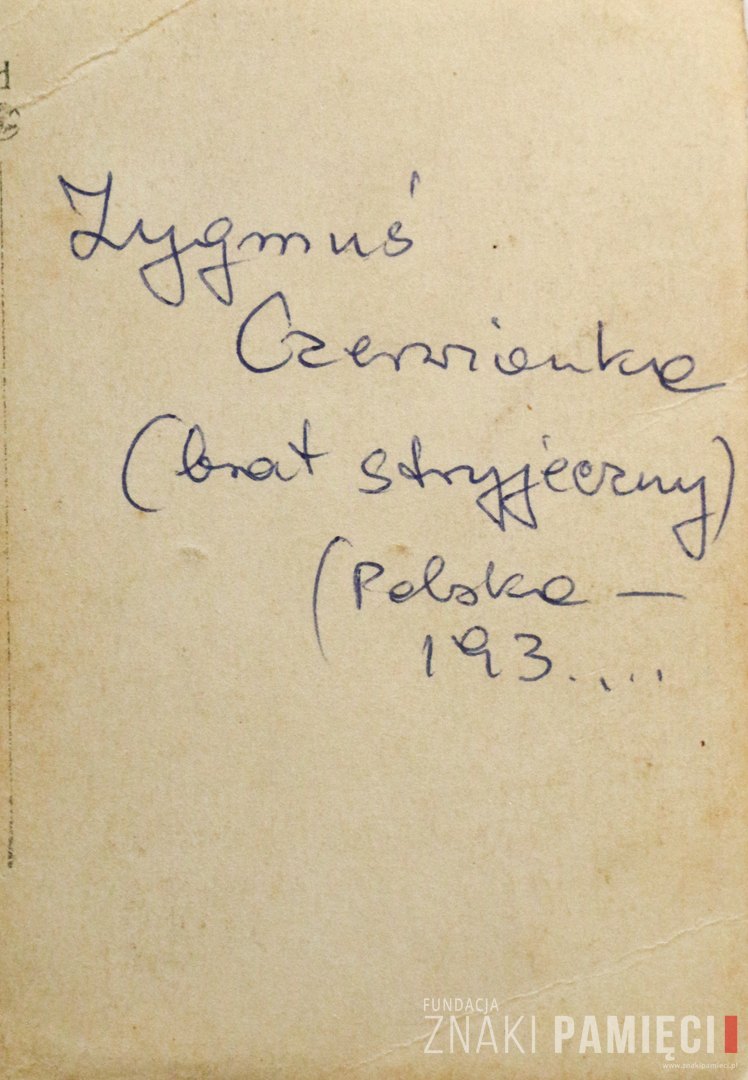 Zygmuś
Czerwionka
(brat stryjeczny)
(Polska —
193.....
FUNDACJA
ZNAKI PAMIĘCI
www.znakipamieci.pl